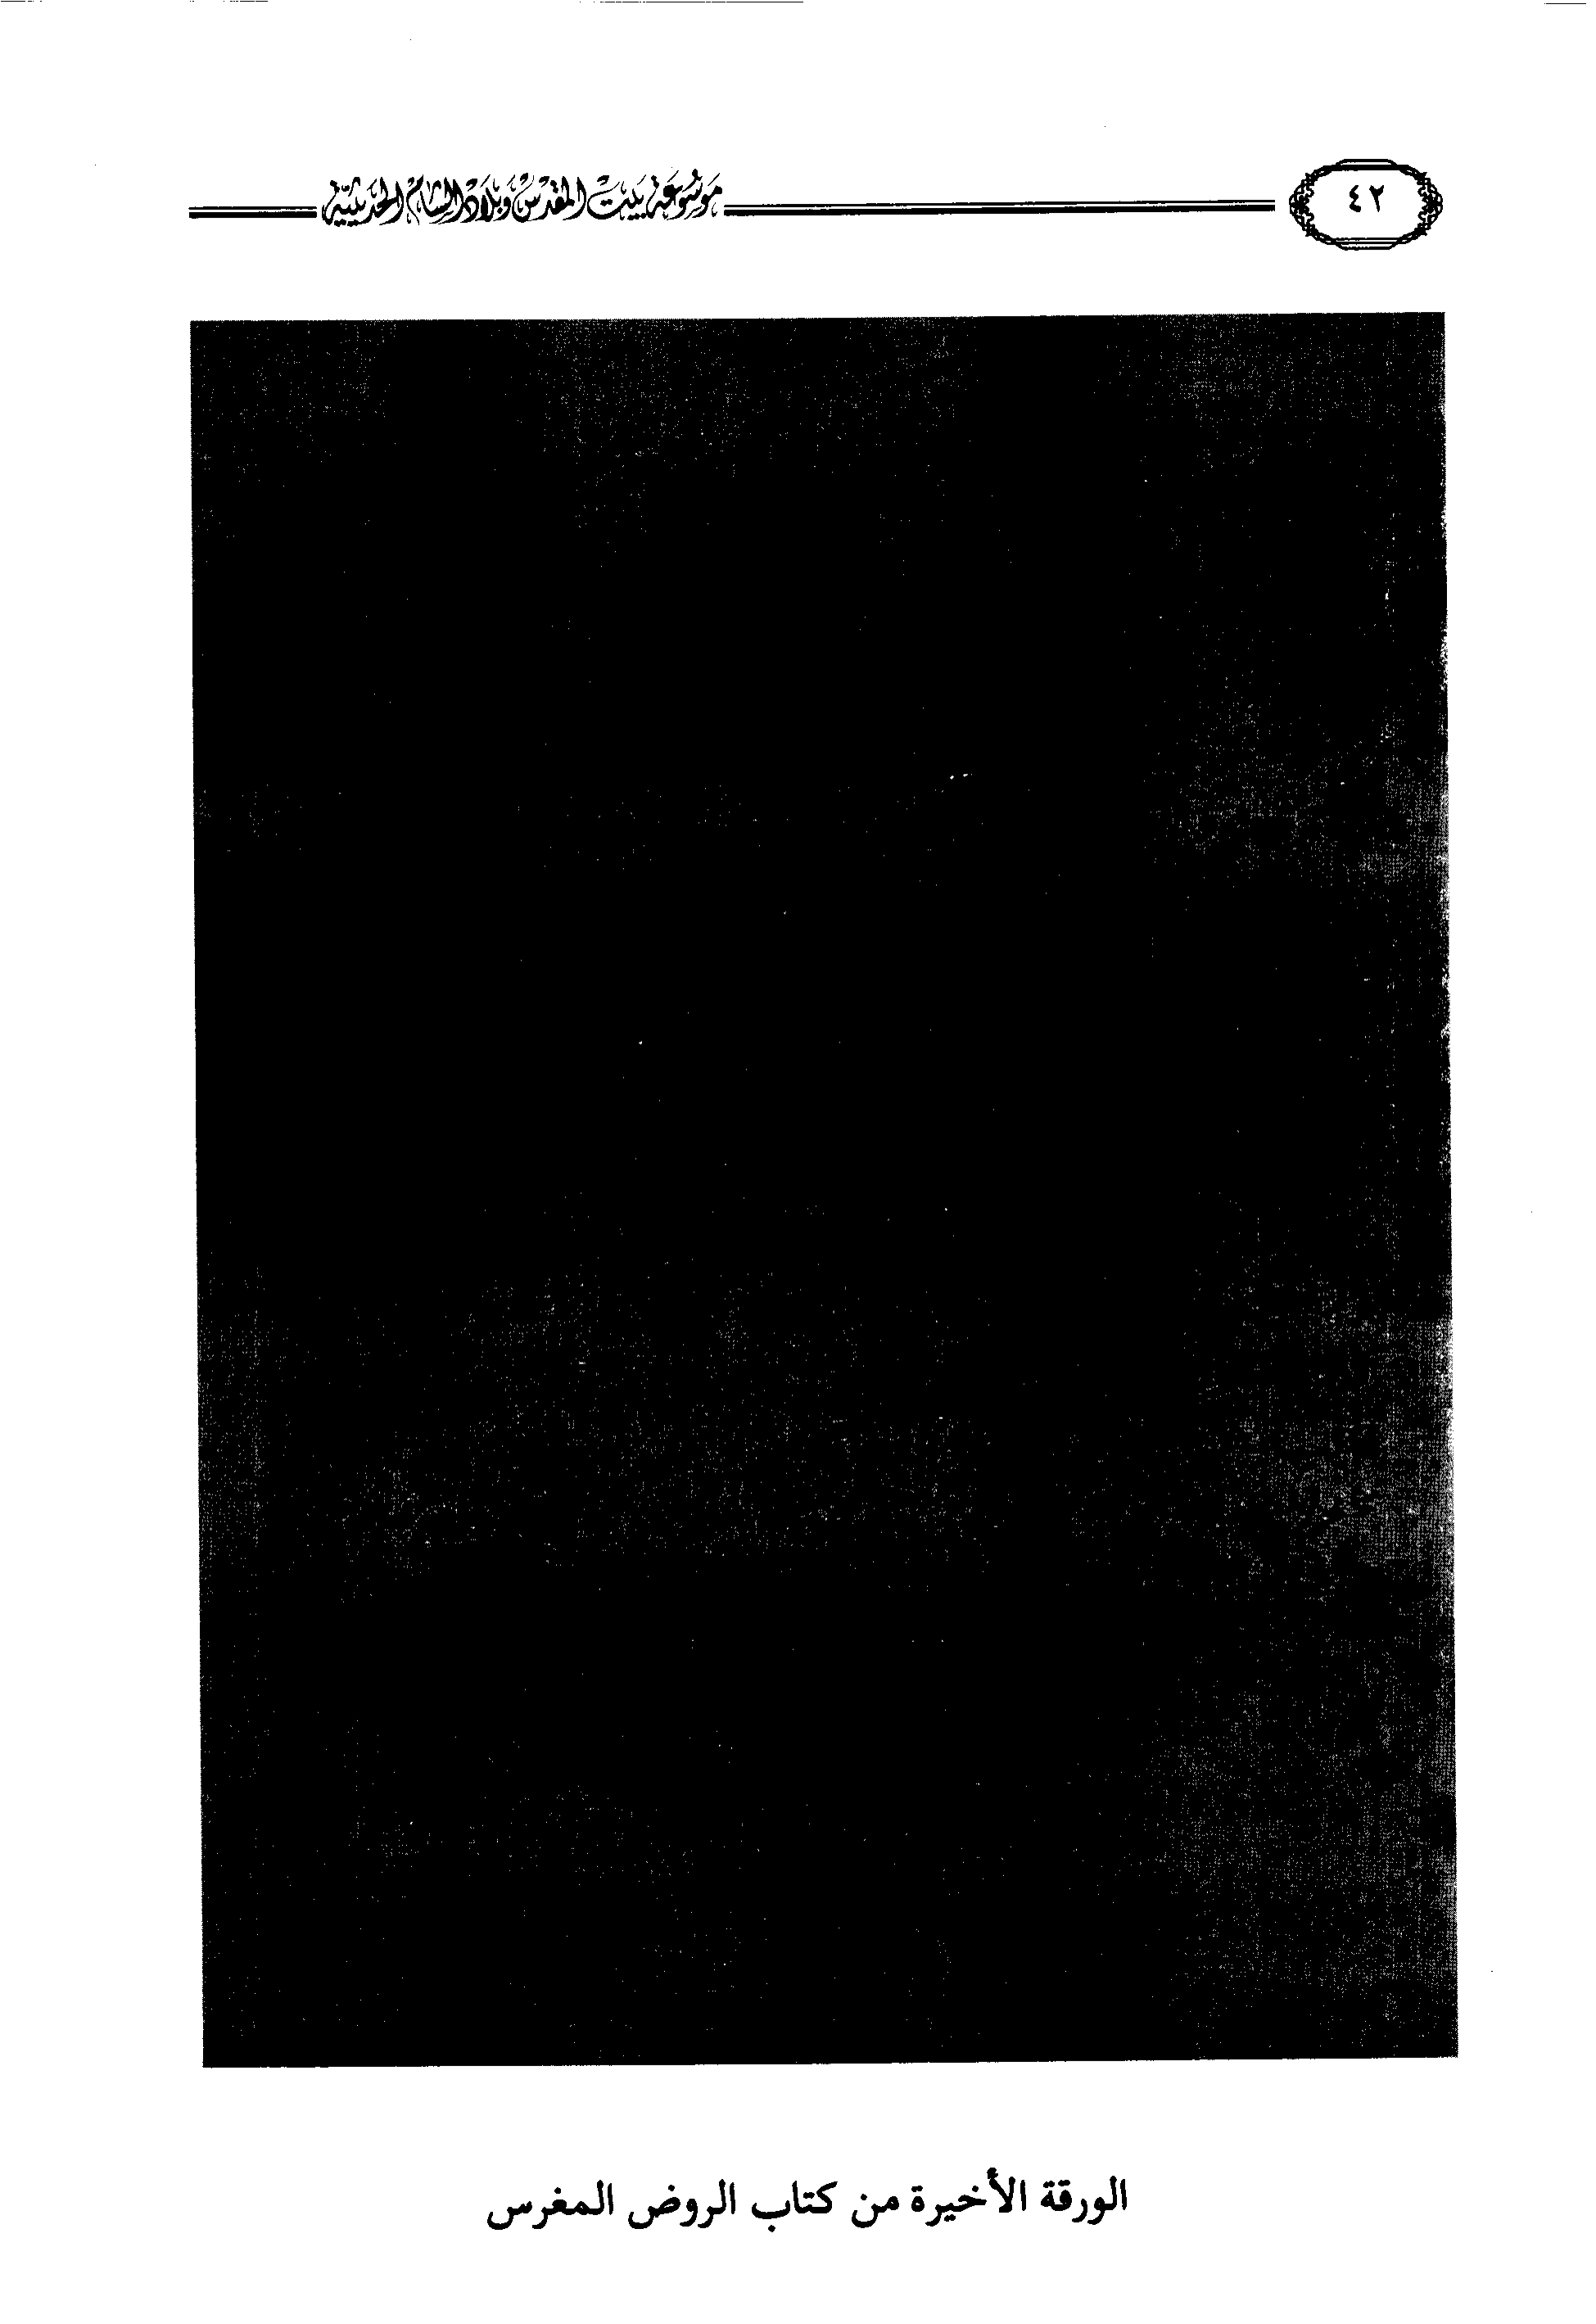 ٤٢
موسوعة بيت المقدس وبلاد الشام الحديثية
الورقة الأخيرة من كتاب الروض المغرس